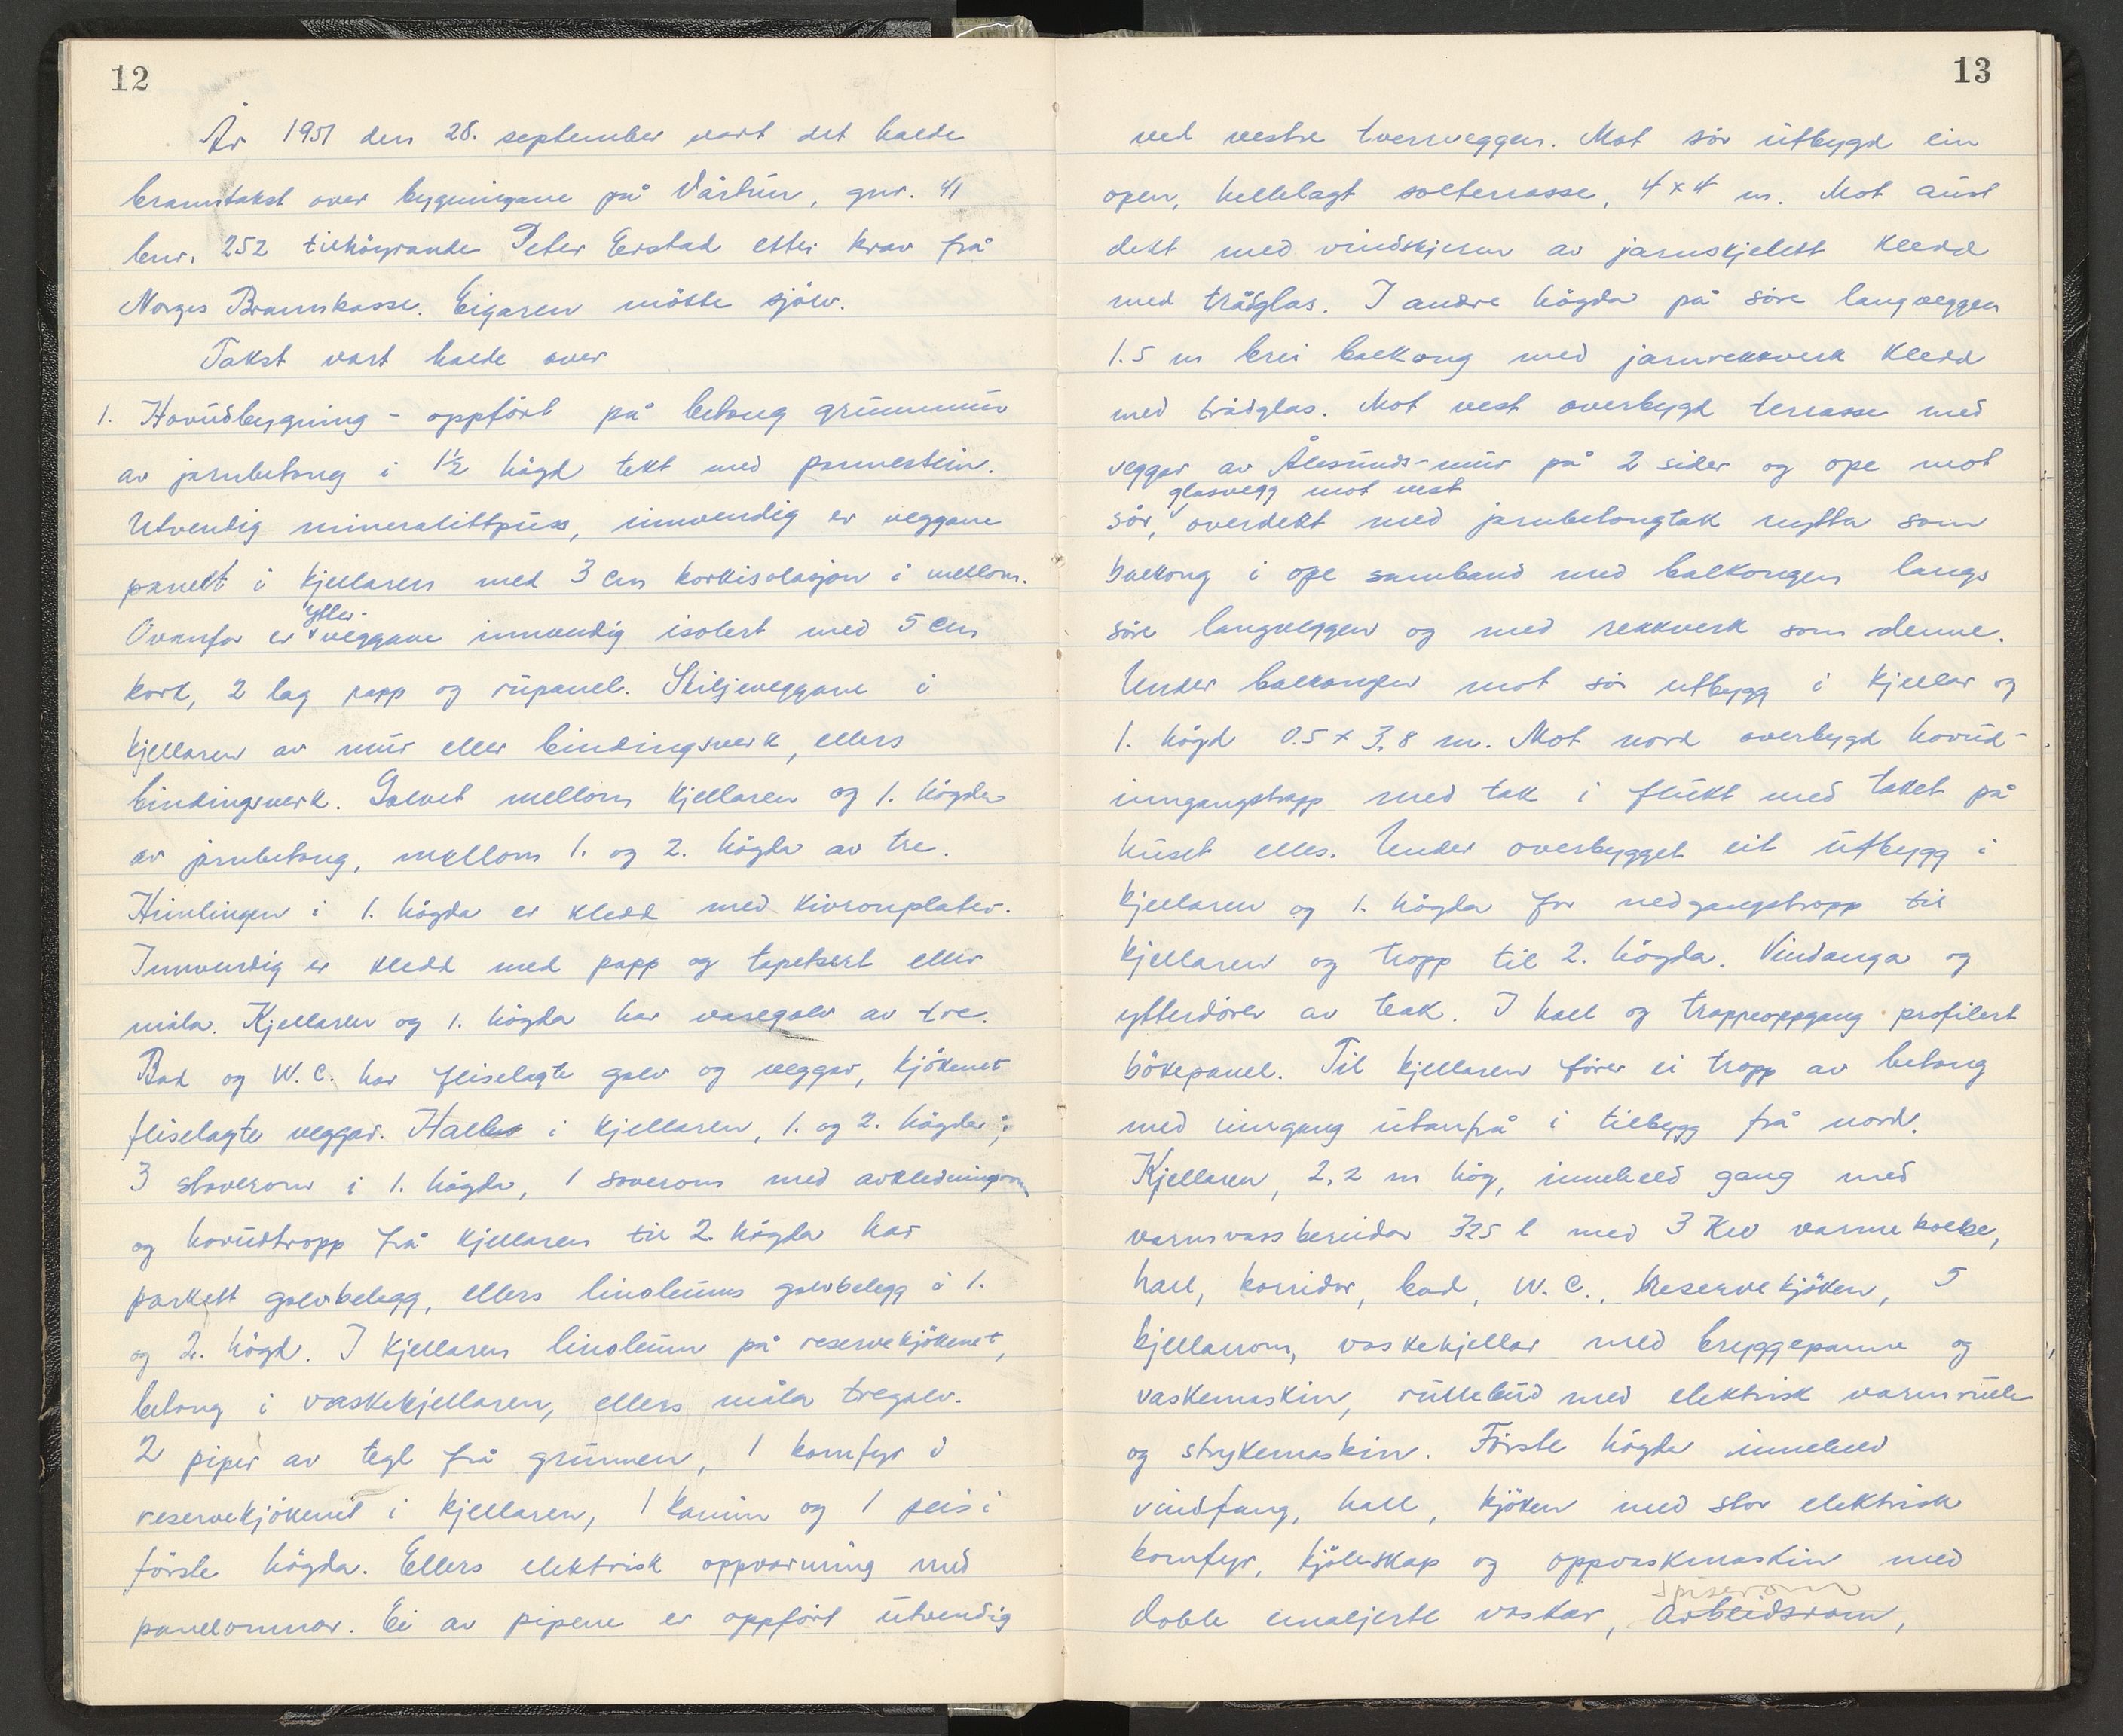 12
År 1951 den 28. september vart det halde
branntakst over bygningane på Vårtun, gnr. 41
bnr. 252 tilhöyrande Peter Erstad etter krav frå
Norges Brannkasse. Eigaren mötte sjölv.
Takst vart halde over
1. Hovudbygning - oppfört på betong grunnmur
av jarnbetong i 1½ högd tekt med pannestein.
Utvendig mineralittpuss, innvendig er veggane
panelt i kjellaren med 3 cm korkisolasjon i mellom.
ytter-
Ovanfor er veggane innvendig isolert med 5 cm
kork, 2 lag papp og rupanel. Skiljeveggane i
kjellaren av mur eller bindingsverk, ellers
bindingsverk. Golvet mellom kjellaren og 1. högda
av jarnbetong, mellom 1. og 2. högda av tre.
Himlingen i 1. högda er kledd med kivronplater.
Innvendig er kledd med papp og tapetsert eller
måla. Kjellaren og 1. högda har varegolv av tre.
Bad og W.C. har fliselagte golv og veggar, kjökenet
fliselagte veggar. Hall i kjellaren, 1. og 2. högda,
3 stoverom i 1. högda, 1 soverom med avkledningsrom
og hovudtropp frå kjellaren til 2. högda har
parkett golvbelegg, ellers linoleums golvbelegg i 1.
og 2. högd. I kjellaren linoleum på reservekjökenet,
betong i vaskekjellaren, ellers måla tregolv.
2 piper av tegl frå grunnen, 1 komfyr i
reservekjökenet i kjellaren, 1 kamin og 1 peis i
förste högda. Ellers elektrisk oppvarming med
panelomnar. Ei av pipene er oppfört utvendig
13
ved vestre tverrveggen. Mot sör utbygd ein
open, hellelagt solterrasse, 4 x 4 m. Mot aust
dekt med vindskjerm av jarnskjelett kledd
med trådglas. I andre högda på söre langveggen
1.5 m brei balkong med jarnrekkverk kledd
med trådglas. Mot vest overbygd terrasse med
veggar av Ålesunds-mur på 2 sider og ope mot
glasvegg mot vest
sör, overdekt med jarnbetongtak nytta som
balkong i ope samband med balkongen langs
söre langveggen og med rekkverk som denne.
Under balkongen mot sör utbygg i kjellar og
1. högd 0.5 x 3,8 m. Mot nord overbygd hovud-
inngangstrapp med tak i flukt med taket på
huset elles. Under overbygget eit utbygg i
kjellaren og 1. högda for nedgangstropp til
kjellaren og tropp til 2. högda. Vindauga og
ytterdörer av teak. I hall og trappeoppgang profilert
bökepanel. Til kjellaren förer ei tropp av betong
med inngang utanfrå i tilbygg frå nord.
Kjellaren, 2,2 m hög, inneheld gang med
varmvassbereidar 325 l med 3 Kw varmekolbe,
hall, korridor, bad, W.C., Reservekjöken, 5
kjellarrom, vaskekjellar med bryggepanne og
vaskemaskin, rullebud med elektrisk varmrulle
og strykemaskin. Förste högda inneheld
vindfang, hall, kjöken med stor elektrisk
komfyr, kjöleskap og oppvaskmaskin med
spiserom
doble emaljerte vaskar, arbeidsrom,